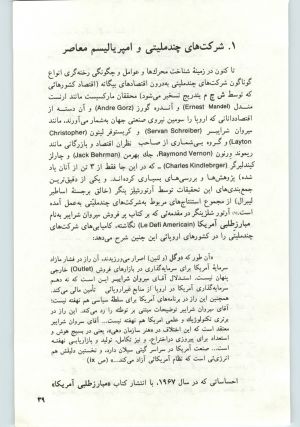 ۱. شرکت‌های چندملیتی و امپریالیسم معاصر
تا کنون در زمینهٔ شناخت محرک‌ها و عوامل و چگونگی رخنه‌گری انواع
گوناگون شرکت‌های چندملیتی در اقتصادهای بیگانه (اقتصاد کشورهائی
که توسط ش چ م بتدریج تسخیر می‌شود) محققان مارکسیست مانند ارنست
مندل (Ernest Mandel) و آندره گورز (Andre Gorz) و آن دسته از
اقتصاددانانی که اروپا را سومین نیروی صنعتی جهان به‌شمار می‌آورند، مانند
سروان شرایبر (Servan Schreiber) و کریستوفر لیتون (Christopher
Layton) و گروه بی‌شماری از صاحب نظران اقتصاد و بازرگانی مانند
ریموند ورنون (Raymond Vernon)، جک بهرمن (Jack Behrman) و چارلز
کیندلبرگر (Charles Kindleberger) ـ که در این جا فقط از ۳ تن از آنان یاد
شده) پژوهش‌ها و بررسی‌های بسیاری کرده‌اند. و یکی از دقیق‌ترین
جمع‌بندی‌های این تحقیقات توسط آرتورشلیز ینگر (خالق برجستهٔ اساطیر
لیبرال) از مجموع استنتاج‌های مربوط به‌شرکت‌های چندملیتی به‌عمل آمده
است. آرتور شلزینگر در مقدمه‌ئی که بر کتاب پر فروش سروان شرایبر به‌نام
مبارزطلبی آمریکا (Le Defi Americain) نگاشته، کامیابی‌های شرکت‌های
چندملیتی را در کشورهای اروپائی این چنین شرح می‌دهد:
«آن طور که دوگل (و لنین) اصرار می‌ورزیدند، آن راز در فشار مازاد
سرمایهٔ آمریکا برای سرمایه‌گذاری در بازارهای فروش (Outlet) خارجی
پنهان نیست. استدلال آقای سروان شرایبر این است که نه‌دهم
سرمایه‌گذاری آمریکا در اروپا از منابع غیراروپائی تأمین مالی می‌کند.
همچنین این راز در برنامه‌های آمریکا برای سلطهٔ سیاسی هم نهفته نیست؛
آقای سروان شرایبر توضیحات مبتنی بر توطئه را رد می‌کند. این راز در
برتری تکنولوژیک و علمی امریکا هم نهفته نیست... آقای سروان شرایبر
معتقد است که این اختلاف در «هنر سازمان دهی»، یعنی در بسیج هوش و
استعداد برای پیروزی دراختراع، و نیز تکامل، تولید و بازاریابی نهفته
است... صنعت آمریکا در سراسر گیتی سیلان دارد، و نخستین دلیلش هم
انرژی‌ئی است که نظام آمریکائی آزاد می‌کند...» (ص ix)
احساساتی که در سال ۱۹۶۷، با انتشار کتاب «مبارزطلبی آمریکا»
۳۹